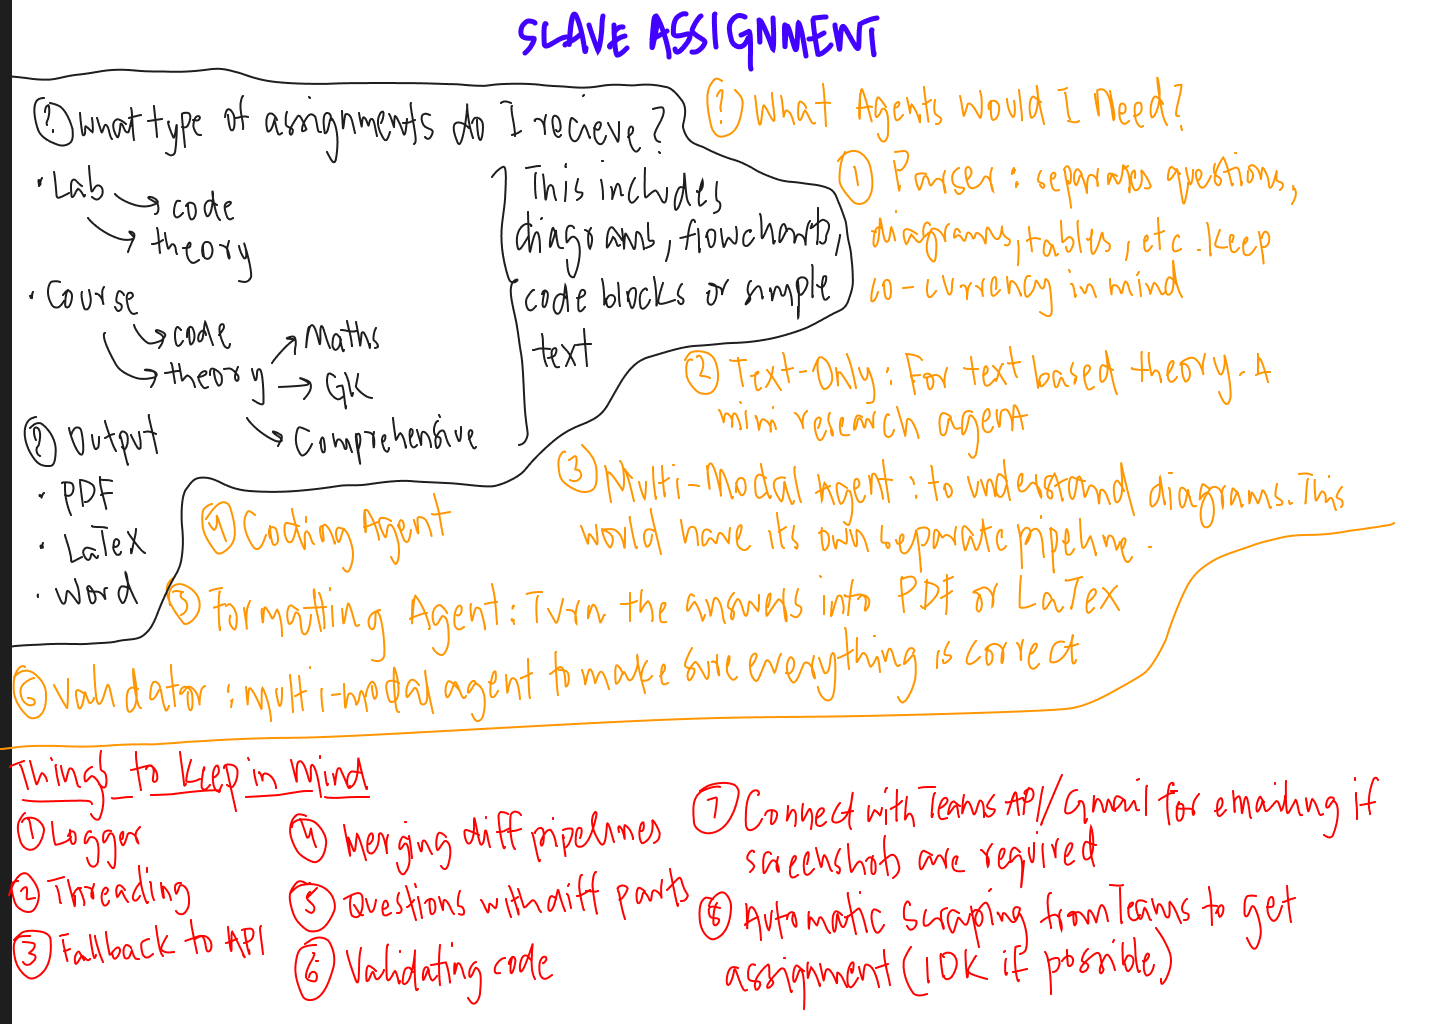 SLAVE ASSIGNMENT
? What type of assignments do I recieve?
• Lab → code
→ theory
• Course
→ code
→ theory → Maths
→ GK
→ Comprehensive
This includes
diagrams, flowcharts,
code blocks or simple
text
? Output
• PDF
• LaTeX
• Word
? What Agents Would I Need?
① Parser: separates questions,
diagrams, tables, etc. Keep
co-currency in mind
② Text-Only: For text based theory. A
mini research agent
③ Multi-Modal Agent: to understand diagrams. This
would have its own separate pipeline.
④ Coding Agent
⑤ Formatting Agent: Turn the answers into PDF or LaTex
⑥ Validator: multi-modal agent to make sure everything is correct
Things to Keep in Mind
① Logger
② Threading
③ Fallback to API
④ Merging diff pipelines
⑤ Questions with diff parts
⑥ Validating code
⑦ Connect with Teams API/Gmail for emailing if
screenshots are required
⑧ Automatic Scraping from Teams to get
assignment (IDK if possible)